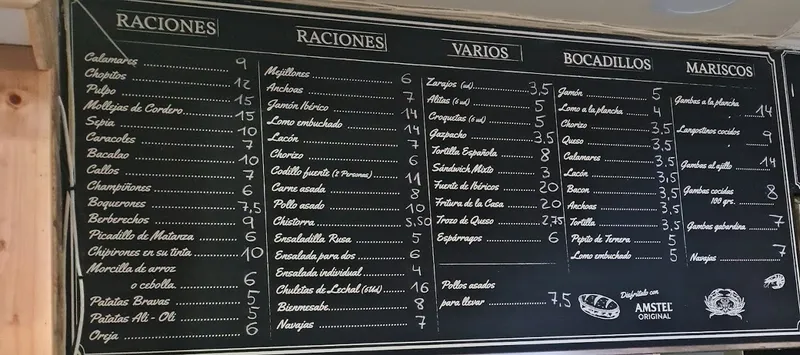 RACIONES
Calamares 9
Chopitos 12
Pulpo 15
Mollejas de Cordero 15
Sepia 10
Caracoles 7
Bacalao 10
Callos 7
Champiñones 6
Boquerones 7,5
Berberechos 9
Picadillo de Matanza 6
Chipirones en su tinta 10
Morcilla de arroz
o cebolla 6
Patatas Bravas 5
Patatas Ali-Oli 5
Oreja 6
RACIONES
Mejillones 6
Anchoas 7
Jamón Ibérico 14
Lomo embuchado 14
Lacón 7
Chorizo 6
Codillo fuente (2 Personas) 11
Carne asada 8
Pollo asado 10
Chistorra 5,50
Ensaladilla Rusa 5
Ensalada para dos 6
Ensalada individual 4
Chuletas de Lechal (6Ud) 16
Bienmesabe 8
Navajas 7
VARIOS
Zarajos (ud) 3,5
Alitas (6 ud) 5
Croquetas (6 ud) 5
Gazpacho 3,5
Tortilla Española 8
Sándwich Mixto 3
Fuente de Ibéricos 20
Fritura de la Casa 20
Trozo de Queso 2,75
Espárragos 6
Pollos asados
para llevar 7,5
BOCADILLOS
Jamón 5
Lomo a la plancha 4
Chorizo 3,5
Queso 3,5
Calamares 3,5
Lacón 3,5
Bacon 3,5
Anchoas 3,5
Tortilla 3,5
Pepito de Ternera 5
Lomo embuchado 5
Disfrútalo con
AMSTEL
ORIGINAL
MARISCOS
Gambas a la plancha
14
Langostinos cocidos
9
Gambas al ajillo 14
Gambas cocidas
100 grs. 8
Gambas gabardina 7
Navajas 7